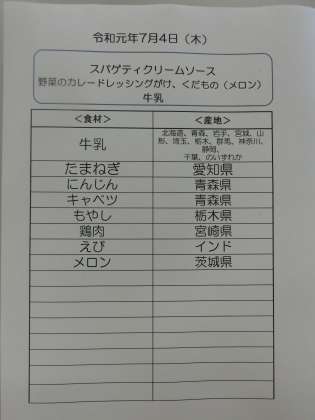 令和元年7月4日（木）
スパゲティクリームソース
野菜のカレードレッシングがけ、くだもの（メロン）
牛乳
＜食材＞ ＜産地＞
牛乳 北海道、青森、岩手、宮城、山
形、埼玉、栃木、群馬、神奈川、
静岡、
千葉、のいずれか
たまねぎ 愛知県
にんじん 青森県
キャベツ 青森県
もやし 栃木県
鶏肉 宮崎県
えび インド
メロン 茨城県